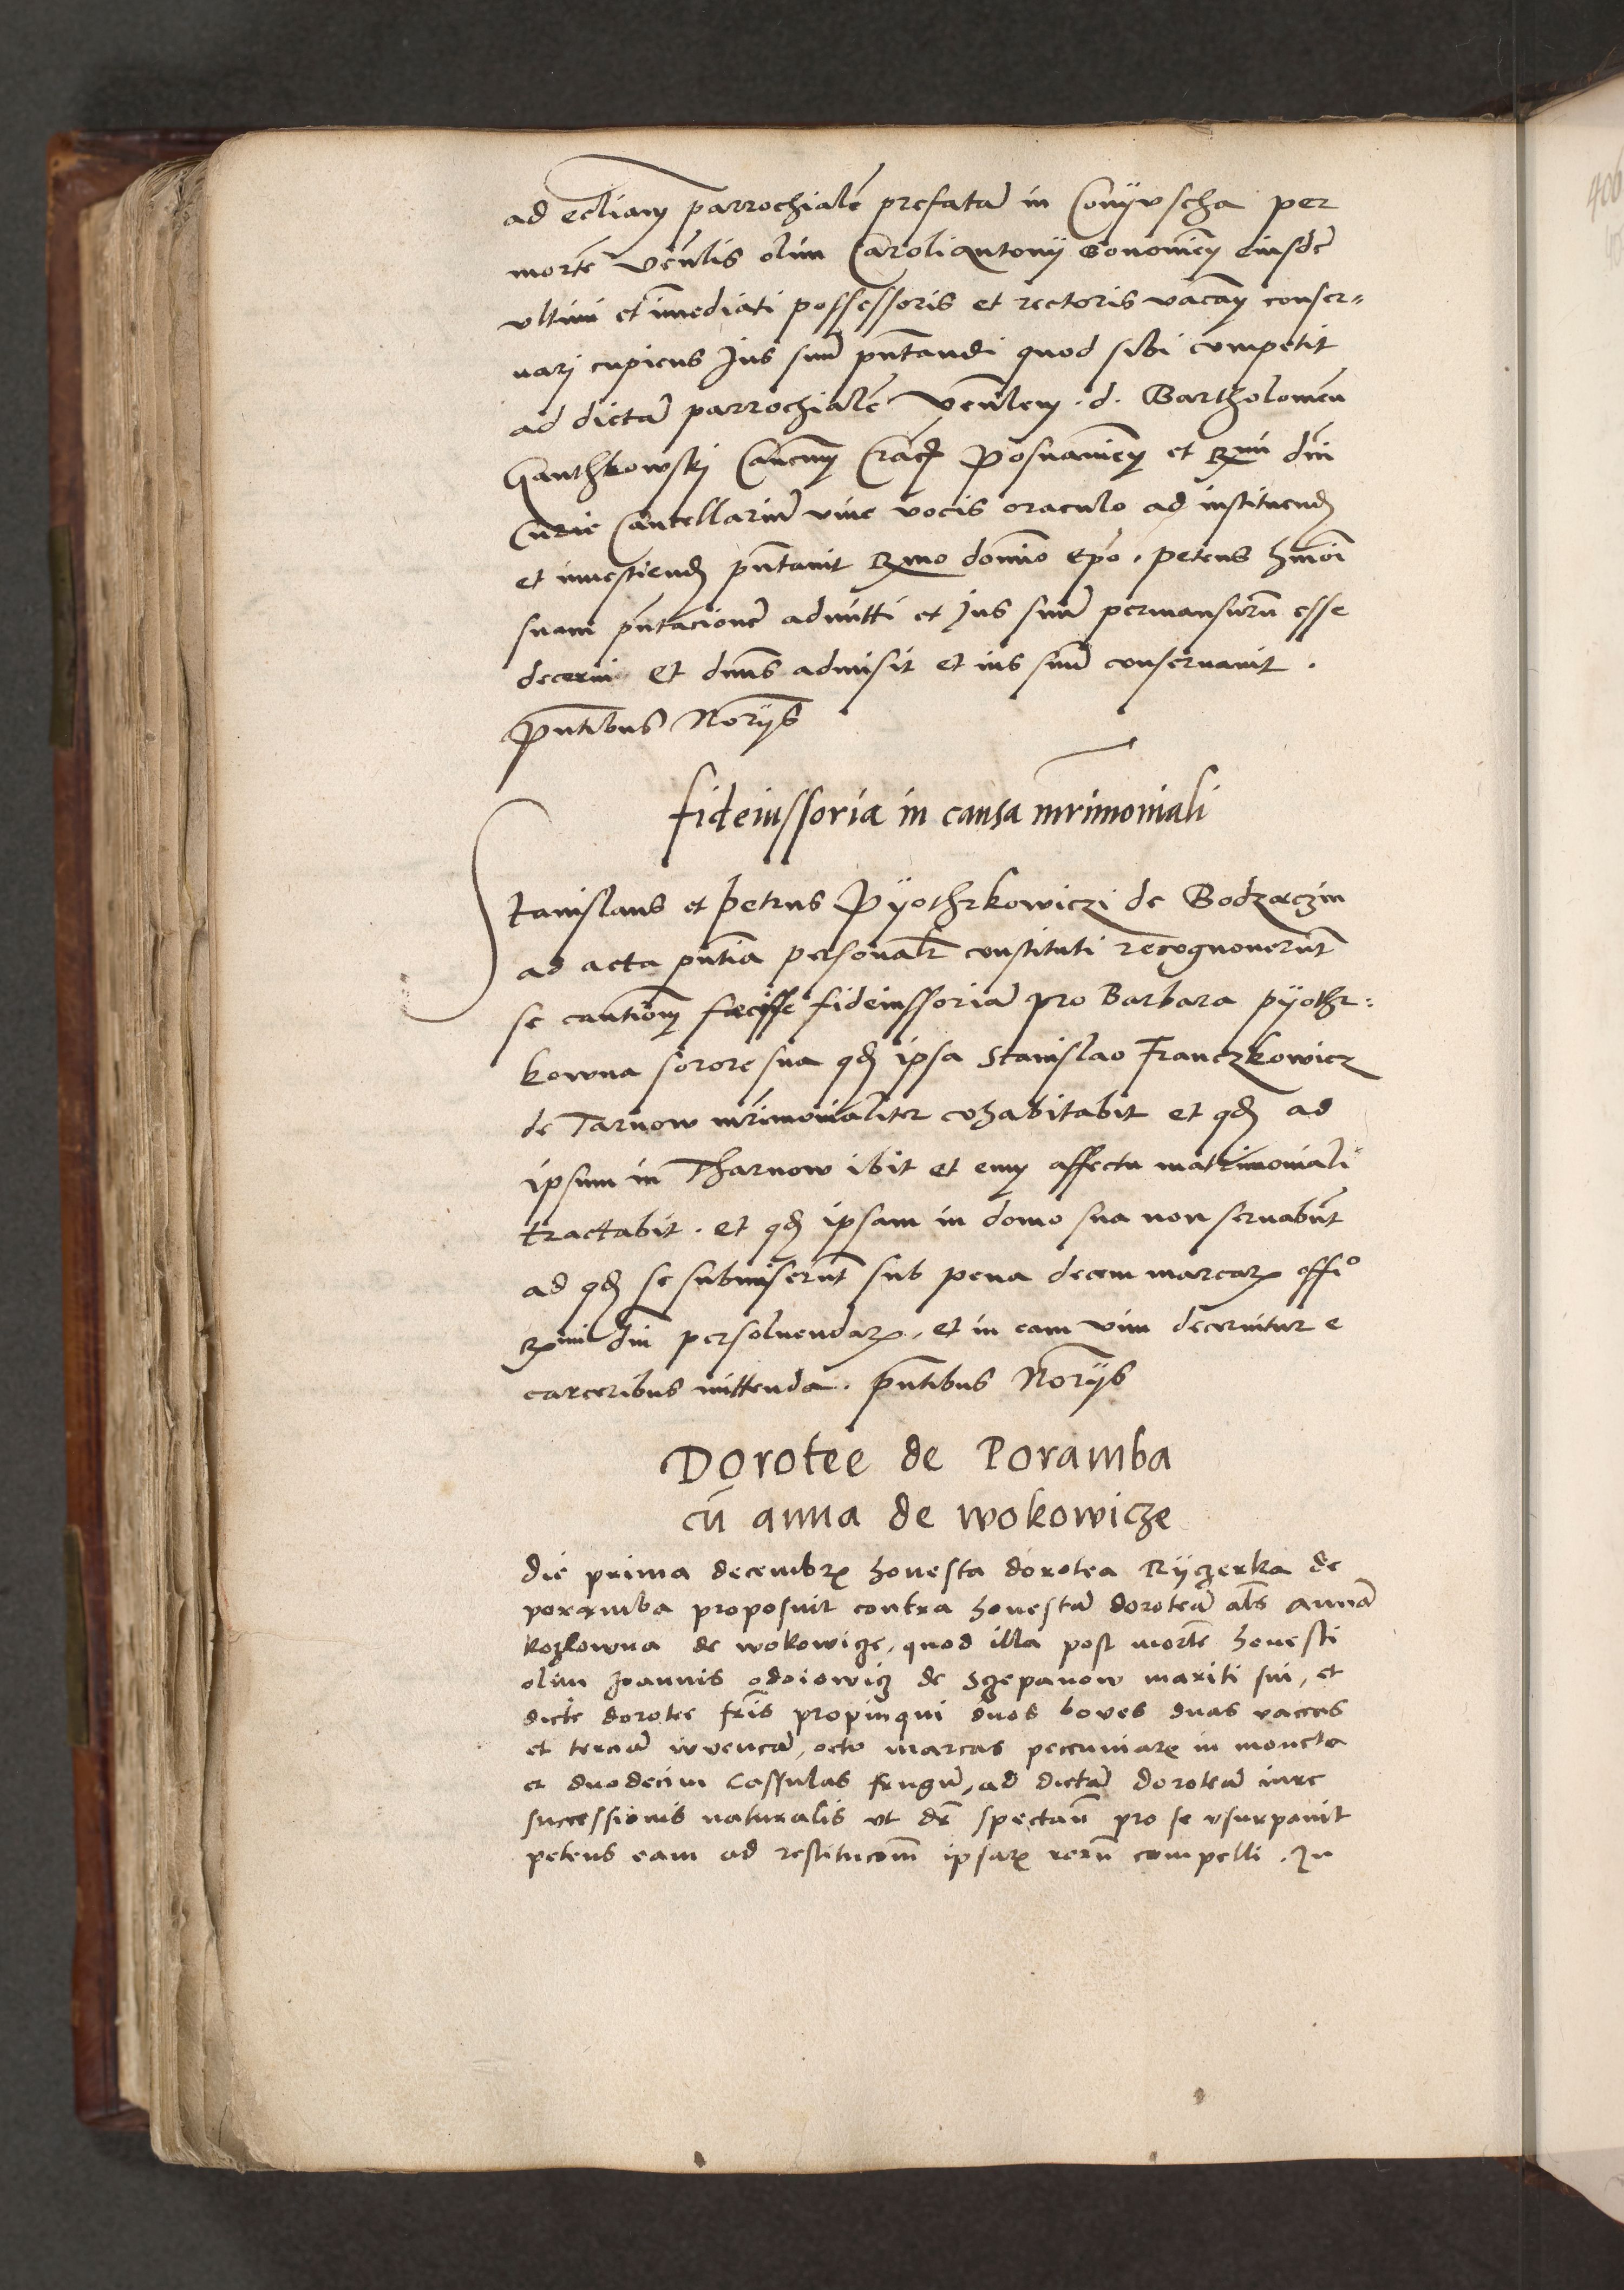 ad eccliam parrochialē prefatā in Conyvscha per
mortē vēnlis olim Caroli Antonij Bononien̄ eiusdē
vltimi et īmediati possessoris et rectoris vacan̄ conser-
uarj cupiens Jus suū pn̄tandi quod sibi competit
ad dictā parrochialē vēnlem . d . Bartholomeū
Ganthkowskj Canonicū Crac̄ Posnanien̄ et Rmi dn̄i
Curie Cancellariū viue vocis oraculo ad instituend
et inuestiend pn̄tauit Rmo domīo Epō . petens hmōi
suam pn̄tacionē admitti et Jus suū permansurū esse
decerni Et dnūs admisit et ius suū conseruauit .
pn̄tibus Norijs
fideiussoria in causa mr̄imoniali
Stanislaus et petrus Pyothrkowiczi de Bodzarczin
ad acta pn̄tia personalr̄ constituti recognouerūt
se caution̄ fecisse fideiussoriā pro Barbara pyothr:
kowna sorore sua qd ipsa Stanislao Franczkowicz
de Tarnow mr̄imonialiter cohabitabit et qd ad
ipsum in Tharnow ibit et eum affectu matrimoniali
tractabit . et qd ipsam in domo sua non seruabūt
ad qd se submiserūt sub pena decem marcarꝝ offio
Rmi dn̄i persoluendarꝝ . et in eam vim decernitur e
carceribus mittenda . pn̄tibus Norijs
Dorotee de Poramba
cū anna de wokowicze
die prima decembrꝭ honesta dorotea Ryczerka de
poramba proposuit contra honestā doroteā als̄ annā
kozlowna de wokowicze, quod illa post mortē honesti
olim Joannis odoiowicz de Sczepanow mariti sui, et
dicte dorotee fr̄is propinqui duos boues duas vaccas
et terciā iuuencā, octo marcas peccuniarꝝ in moneta
et duodecim Cassulas frugū, ad dictā doroteā iure
successionis naturalis vt dr̄ spectan̄ pro se vsurpauit
petens eam ad restitucōm̄ ipsarꝝ rerū compelli . In